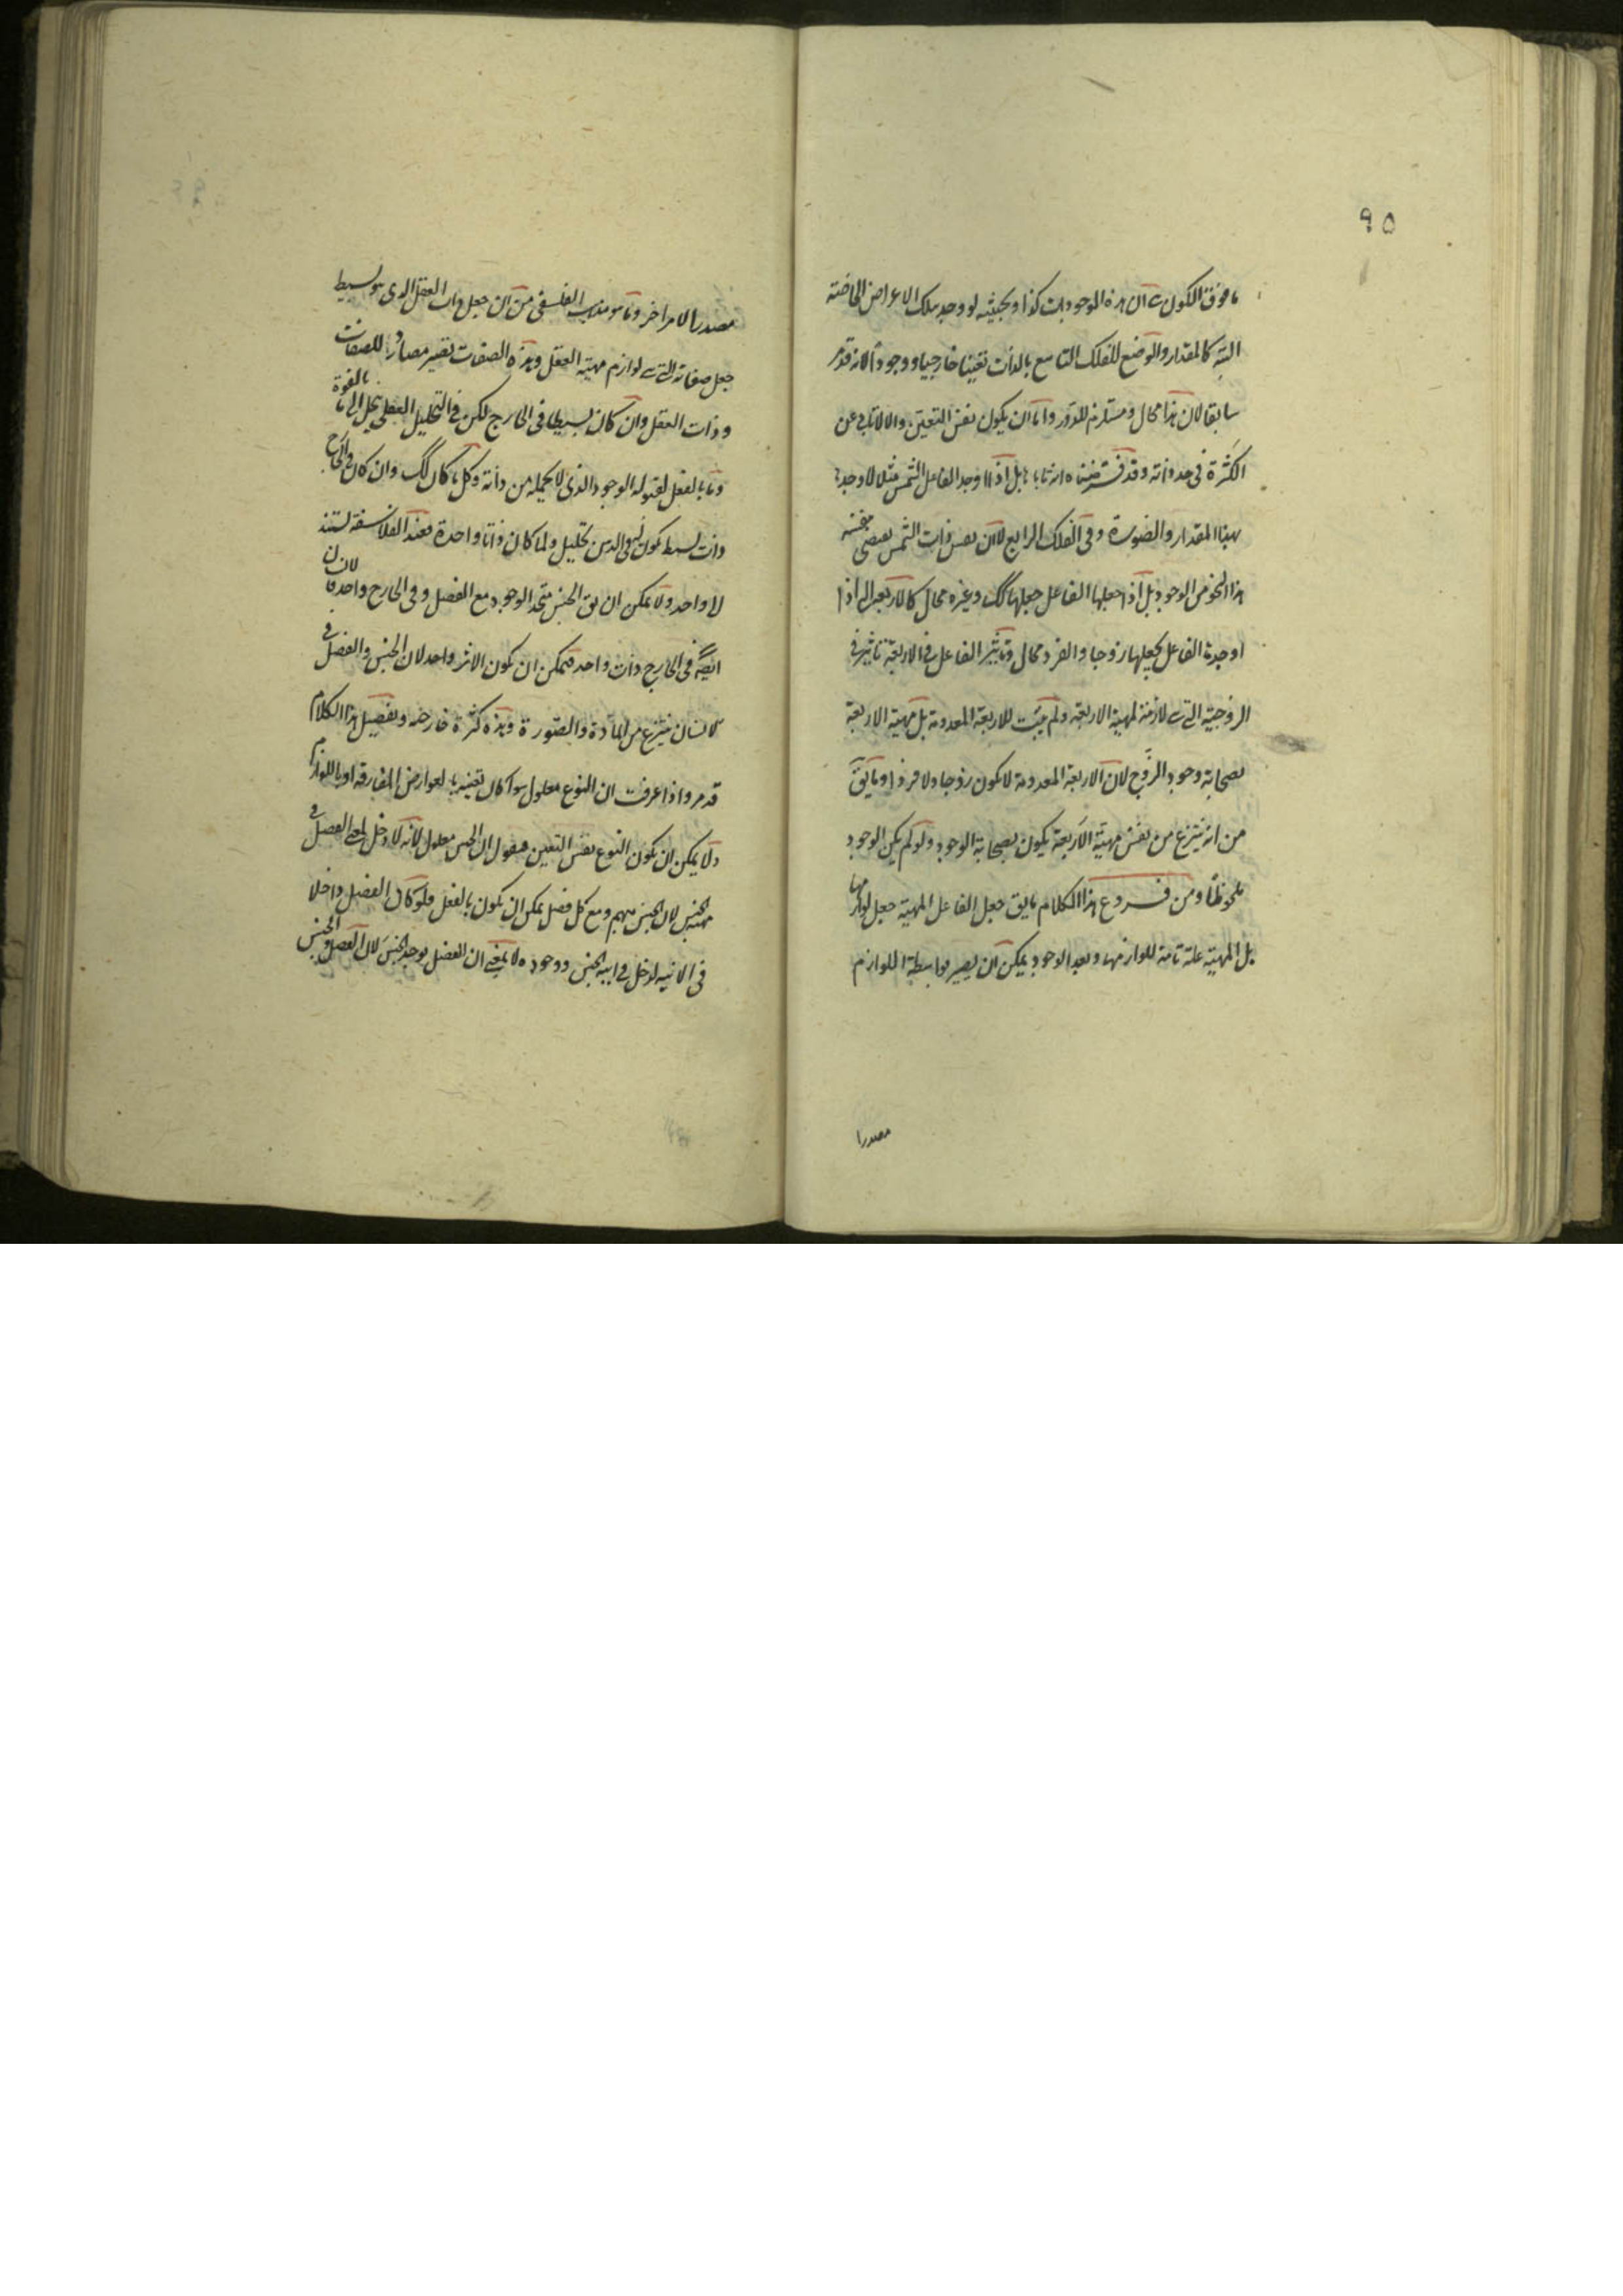 ٩٥
ما فوق الكون ان هذه الموجودات كذا وبحيثية لو وجد بتلك الاعراض الخاصة
البتة كالمقدار والوضع للفلك التاسع بالذات تعينا خارجيا ووجودا لانه قد مر
سابقا لان هذا محال ومستلزم للدور واما ان يكون نفس التعين والا لا تابى عن
الكثرة فى حد ذاته وقد فرضناه بل اذا اوجد الفاعل الشمس مثلا لا وجدها
بهذا المقدار والصورة وفى الفلك الرابع لان نفس ذات الشمس يقتضى بنفسه
هذا النحو من الوجود بل اذا جعلها الفاعل جعلها كك وغيره محال كالاربعة اذا
اوجدها الفاعل يجعلها زوجا والفرد محال وتاثير الفاعل فى الاربعة تاثير فى
الزوجية التى لازمة لمهية الاربعة ولم يثبت للاربعة المعدومة بل مهية الاربعة
بصحابة وجود الزوج لان الاربعة المعدومة لا يكون زوجا ولا فردا وما يق
من انه ينتزع من نفس مهية الاربعة يكون بصحابة الوجود ولو لم يكن الوجود
ملحوظا ومن فروع هذا الكلام ما يق جعل الفاعل المهية جعل لوازمها
بل المهية علة تامة للوازمها وبعد الوجود يمكن ان يصير بواسطة اللوازم
مصدرا
مصدرا لامر اخر وما هو مذهب الفلسفى من ان جعل ذات العقل الذى هو بسيط
جعل صفاته التى لوازم مهية العقل وهذه الصفات تصير مصادر للصفات
وذات العقل وان كان بسيطا فى الخارج لكن فى التحليل العقلى ينحل الى ما بالقوة
وما بالفعل لقبوله الوجود الذى لا يحمله من ذاته وكل ما كان كك وان كان فى الخارج
ذات بسيط يكون فى الذهن تحليل ولما كان ذاتا واحدة فعند الفلاسفة يستند
لا واحد ولا يمكن ان يق الجنس متحد الوجود مع الفصل وفى الخارج واحد لان
ايضا فى الخارج ذات واحد فيمكن ان يكون الاثر واحد لان الجنس والفصل فى
الانسان ينتزع من المادة والصورة وهذه كثرة خارجه وتفصيل هذا الكلام
قد مر واذا عرفت ان النوع معلول سواء كان تعينه بالعوارض المفارقة او باللوازم
ولا يمكن ان يكون النوع نفس التعين فنقول ان الجنس معلول لانه لا دخل لمعنى الفصل فى
مهية الجنس لان الجنس مبهم ومع كل فصل يمكن ان يكون بالفعل فلو كان الفصل داخلا
فى الانية لدخل فى انية الجنس ووجوده لا بمعنى ان الفصل يوجد الجنس لان الفصل والجنس